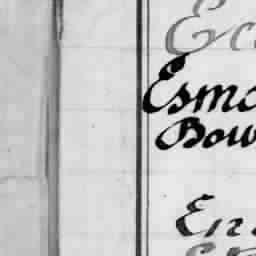 Ec
Esmo
Bow
En